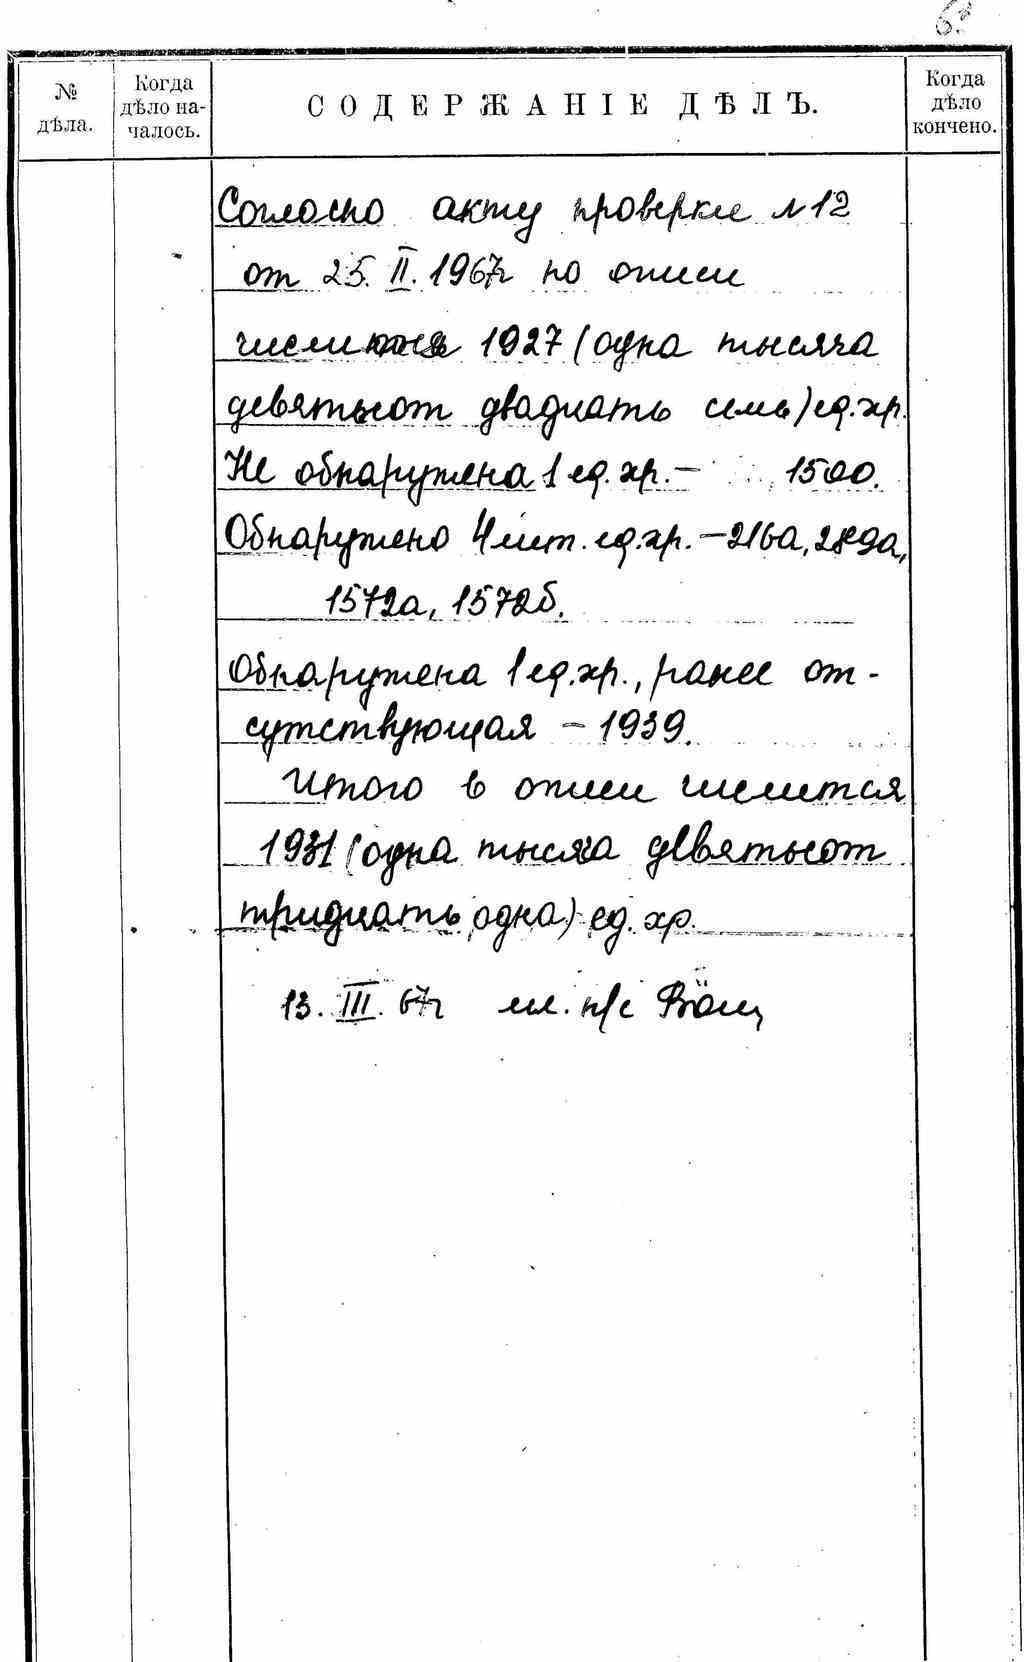 № дѣла.
Когда дѣло на-
чалось.
СОДЕРЖАНІЕ ДѢЛЪ.
Когда дѣло кончено.
Согласно акту проверки №12
от 25. II. 1967г по описи
1927 (одна тысяча
девятьсот двадцать семь) ед.хр.
Не обнаружена 1 ед.хр. - 1500.
Обнаружено 4 лит. ед.хр. - 216а, 289а,
1572а, 1572б.
Обнаружена 1 ед.хр., ранее от-
сутствующая - 1939.
Итого в описи числится
1931 (одна тысяча девятьсот
тридцать одна) ед. хр.
13. III. 67г мл. н/с